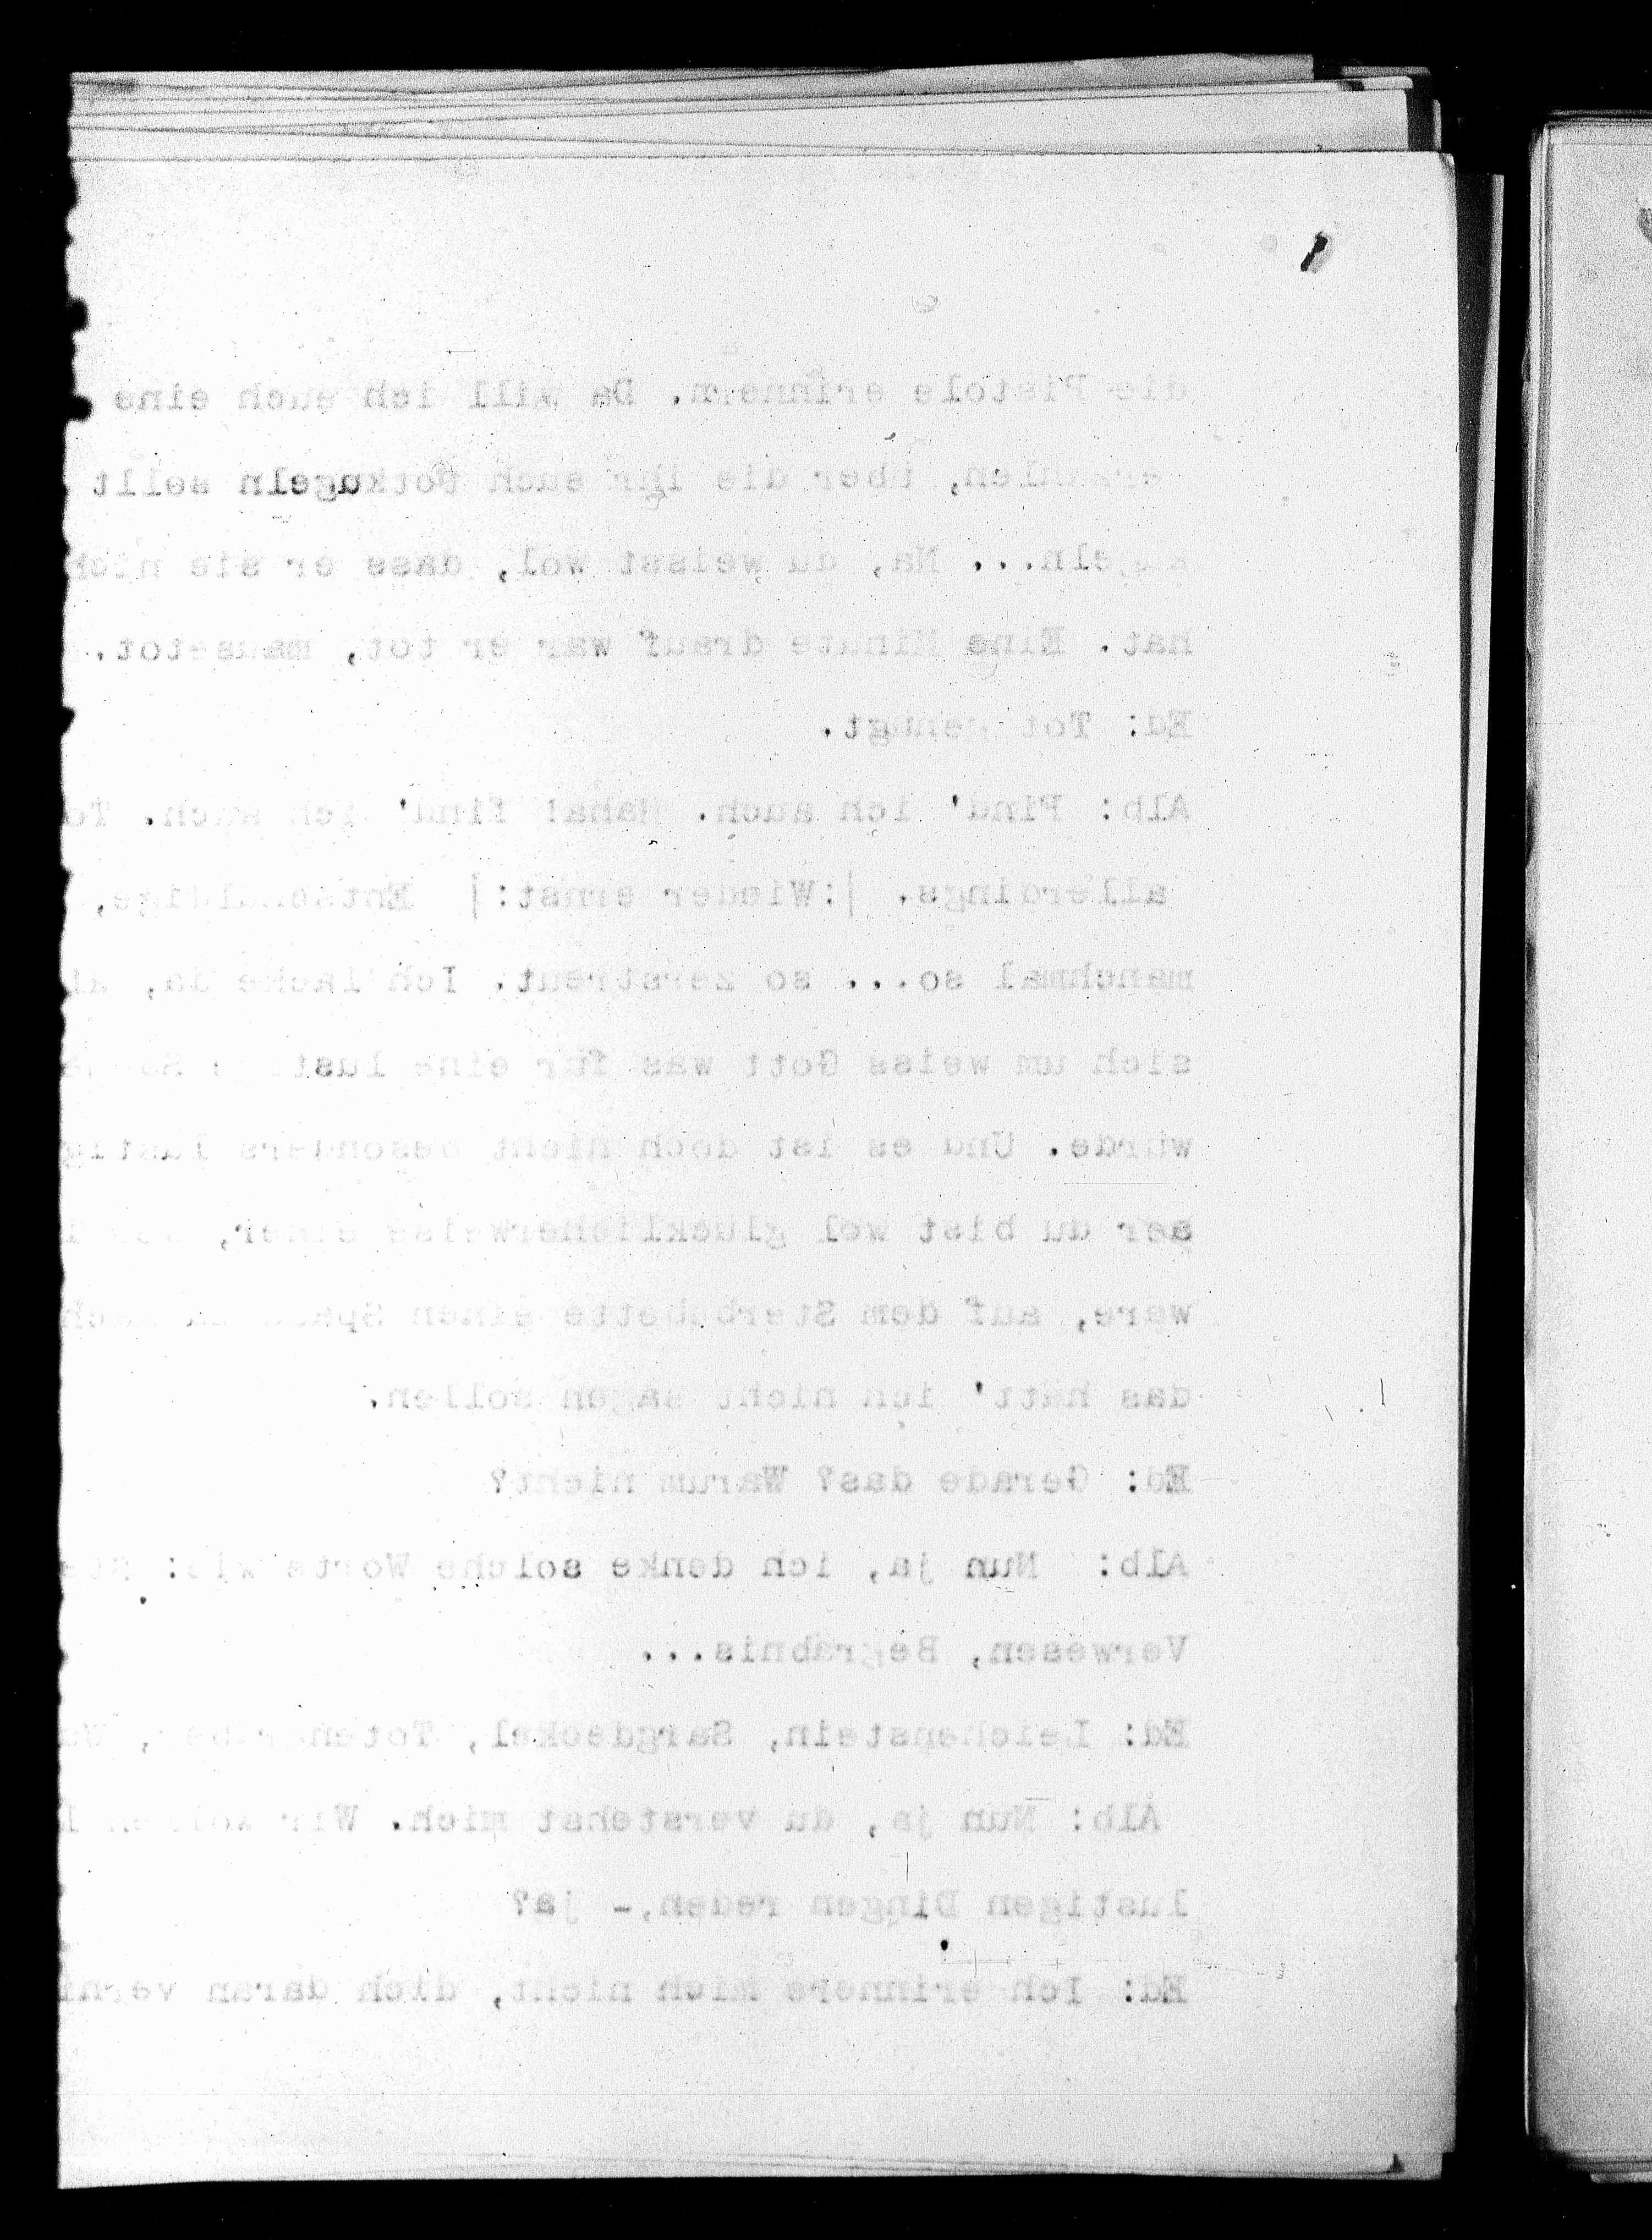 die Pistole erinnern. Da will ich euch eine
erzählen, über die ihr euch totkugeln sollt
ugeln... Na, du weisst wol, dass er sie nich
hat. Eine Minute drauf war er tot, mausetot.
Ed: Tot genügt.
Alb: Find' ich auch. Haha! find' ich auch. To
allerdings. |:Wieder ernst:| Entschuldige,
manchmal so... so zerstreut. Ich lache da, al
sich um weiss Gott was für eine lustige
würde. Und es ist doch nicht besonders lustig
ser du bist wol glücklicherweise einer,
wäre, auf dem Sterbebette einen
das hätt' ich nicht sagen sollen.
Ed: Gerade das? Warum nicht?
Alb: Nun ja, ich denke solche Worte wie: Ste
Verwesen, Begräbnis...
Ed: Leichenstein, Sargdeckel, Totengräber,
Alb: Nun ja, du verstehst mich. Wir wollen
lustigen Dingen reden,- ja?
Ed: Ich erinnere mich nicht, dich daran verhi